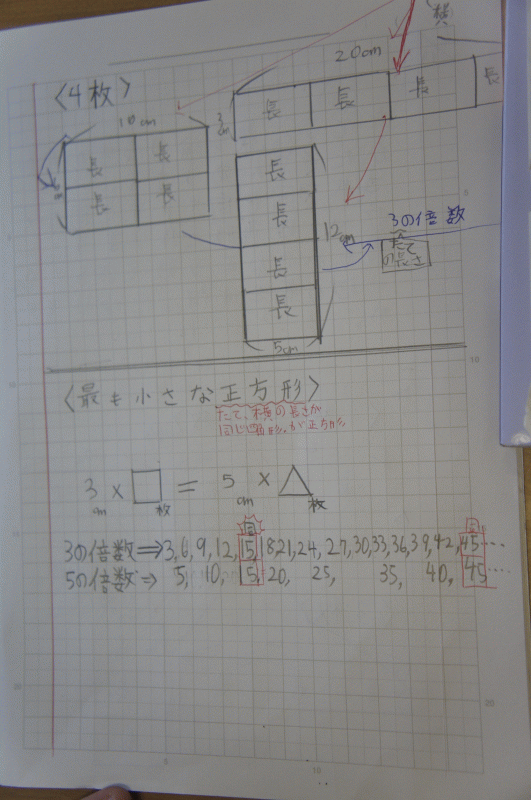 横
20cm
〈4枚〉
10cm
3cm
長 長 長 長
長 長
長 長
長
長
長
長
12cm
5cm
3の倍数
たて
の長さ
〈最も小さな正方形〉
たて、横の長さが
同じ四角形が正方形
3cm × □枚 = 5cm × △枚
3の倍数⇒3,6,9,12,15,18,21,24,27,30,33,36,39,42,45…
5の倍数⇒5,10,15,20,25,35,40,45…
10
20
10